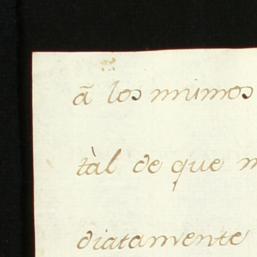 ã los mimos
tàl de que m
diatamente